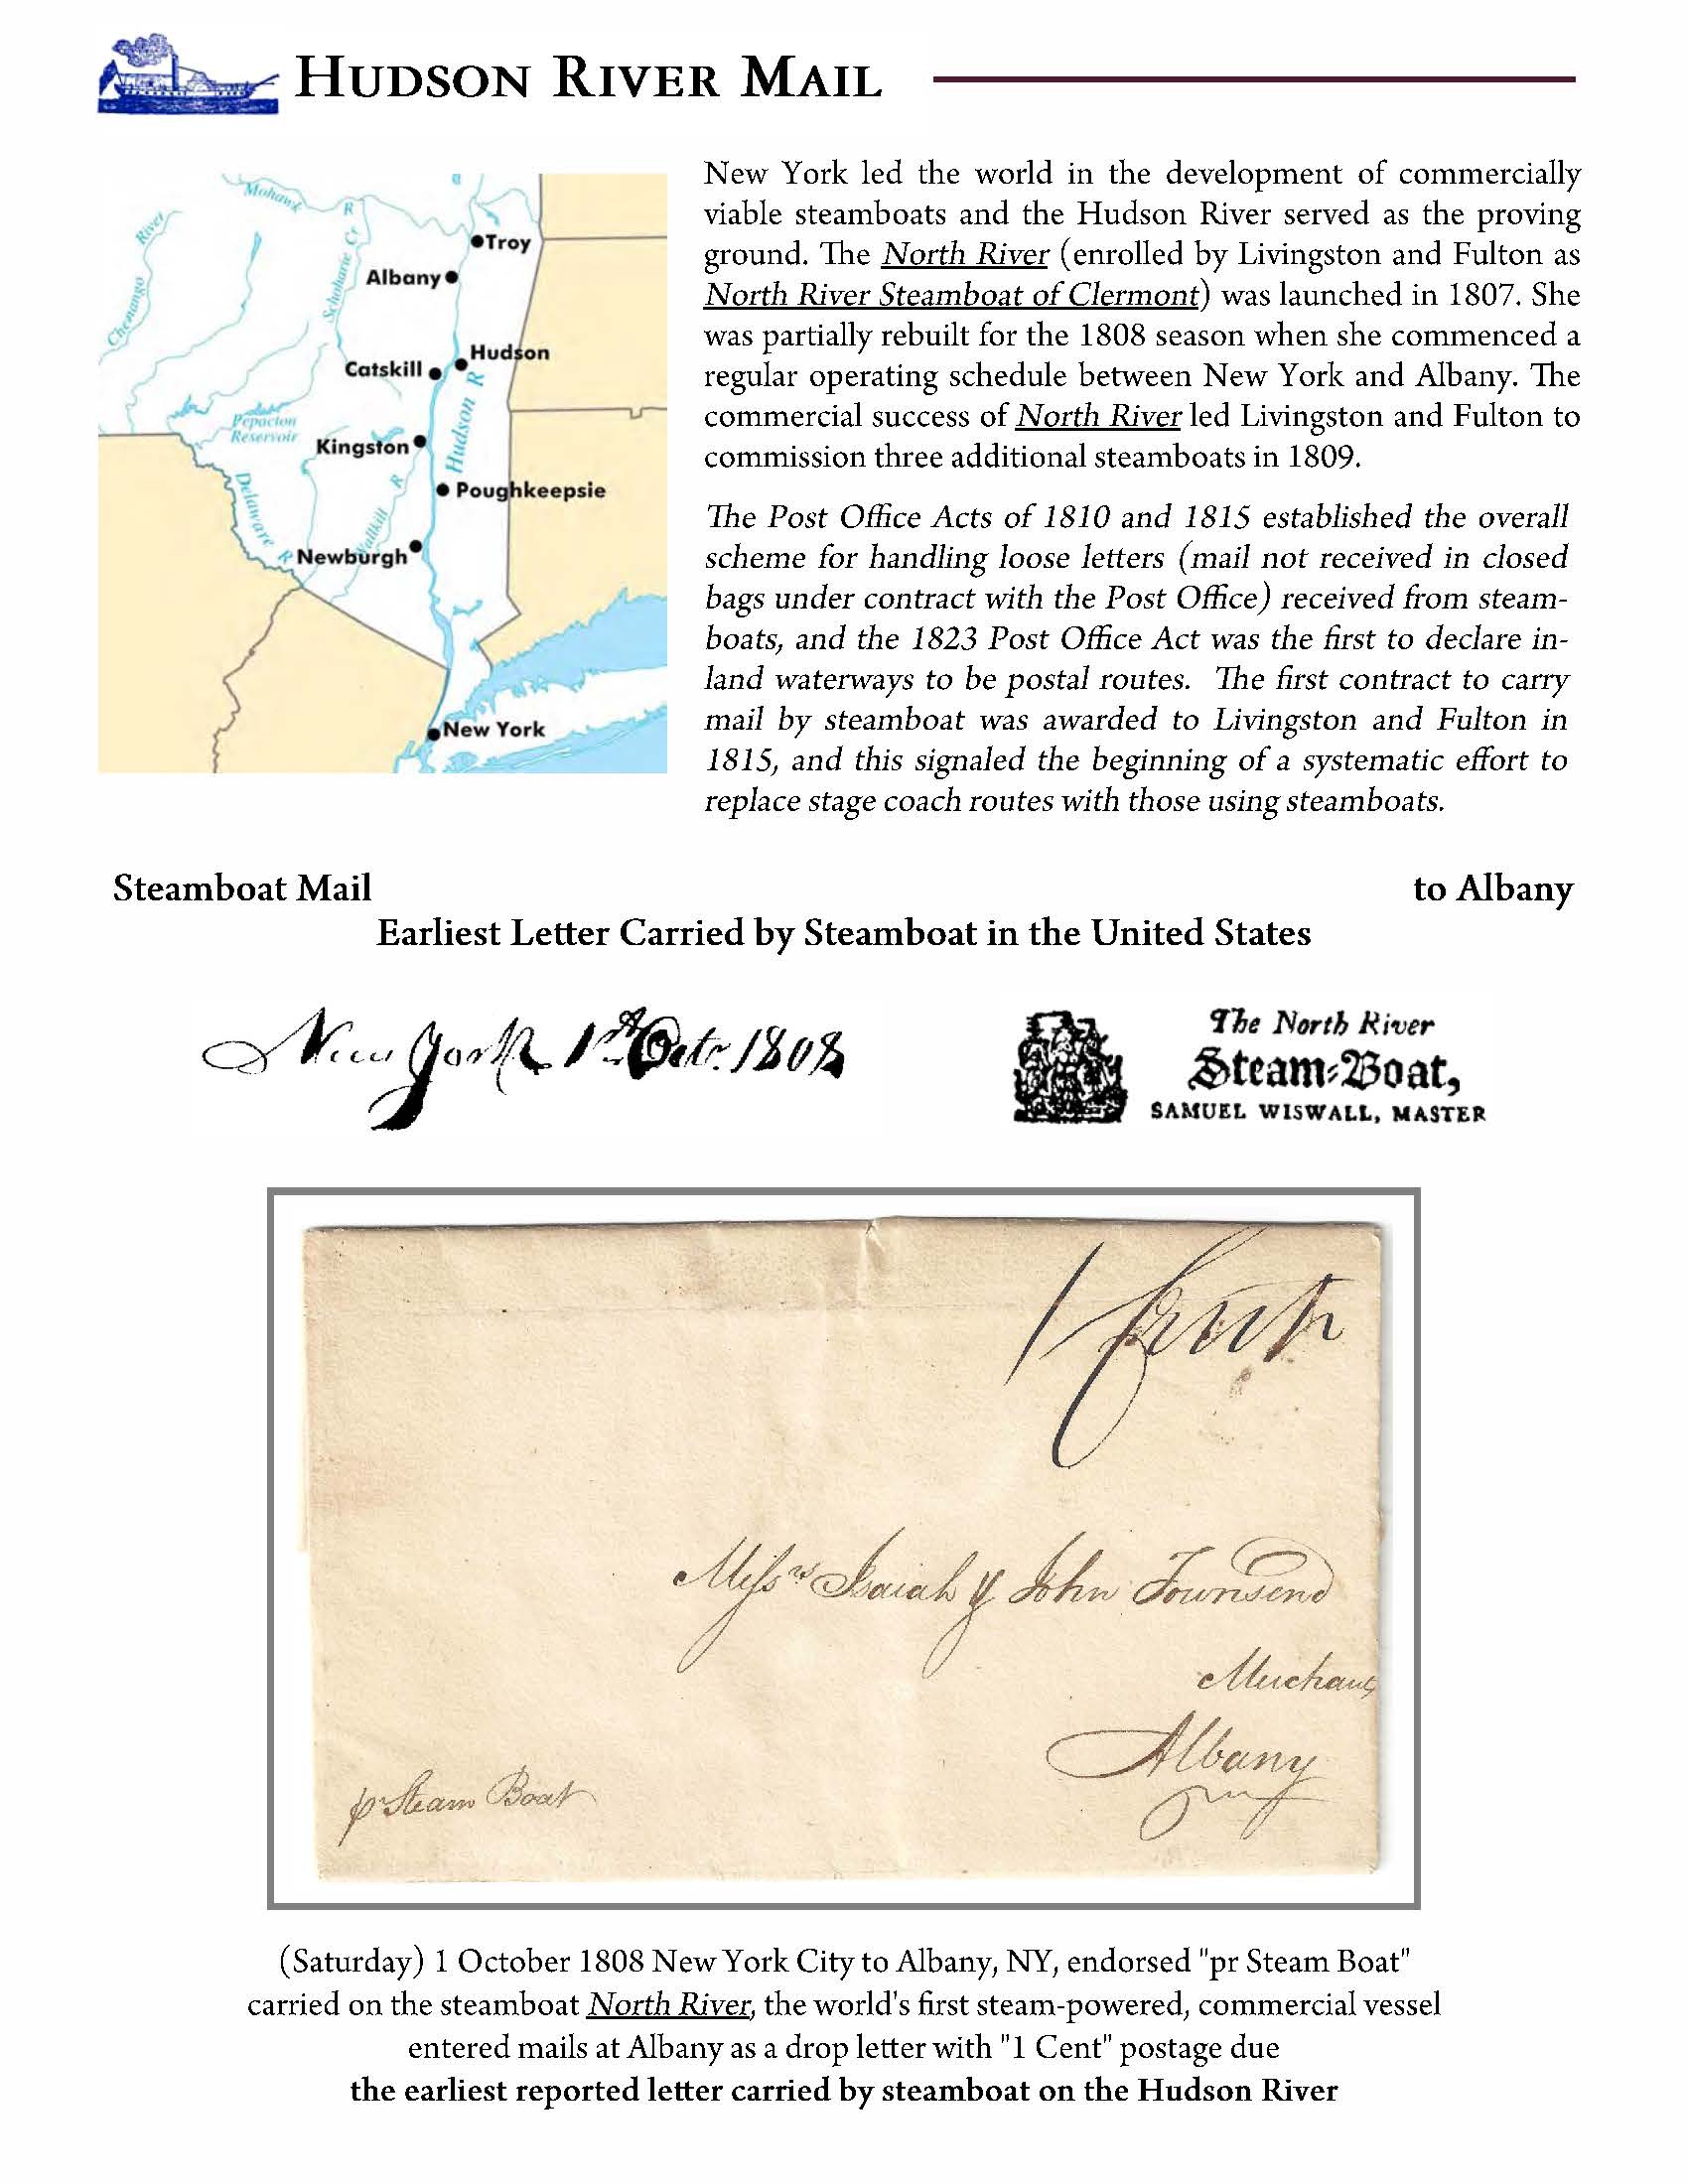 HUDSON RIVER MAIL
Mohawk R
River
Chenango
Schoharie Cr
Troy
Albany
Hudson
Catskill
Hudson R
Pepacton
Reservoir
Kingston
Poughkeepsie
Delaware R
Wallkill R
Newburgh
New York
New York led the world in the development of commercially
viable steamboats and the Hudson River served as the proving
ground. The North River (enrolled by Livingston and Fulton as
North River Steamboat of Clermont) was launched in 1807. She
was partially rebuilt for the 1808 season when she commenced a
regular operating schedule between New York and Albany. The
commercial success of North River led Livingston and Fulton to
commission three additional steamboats in 1809.
The Post Office Acts of 1810 and 1815 established the overall
scheme for handling loose letters (mail not received in closed
bags under contract with the Post Office) received from steam-
boats, and the 1823 Post Office Act was the first to declare in-
land waterways to be postal routes. The first contract to carry
mail by steamboat was awarded to Livingston and Fulton in
1815, and this signaled the beginning of a systematic effort to
replace stage coach routes with those using steamboats.
Steamboat Mail to Albany
Earliest Letter Carried by Steamboat in the United States
New York 1st Octr. 1808
The North River
Steam-Boat,
SAMUEL WISWALL, MASTER
1 Cent
Messrs Isaiah & John Townsend
Merchants
Albany
pr Steam Boat
(Saturday) 1 October 1808 New York City to Albany, NY, endorsed "pr Steam Boat"
carried on the steamboat North River, the world's first steam-powered, commercial vessel
entered mails at Albany as a drop letter with "1 Cent" postage due
the earliest reported letter carried by steamboat on the Hudson River